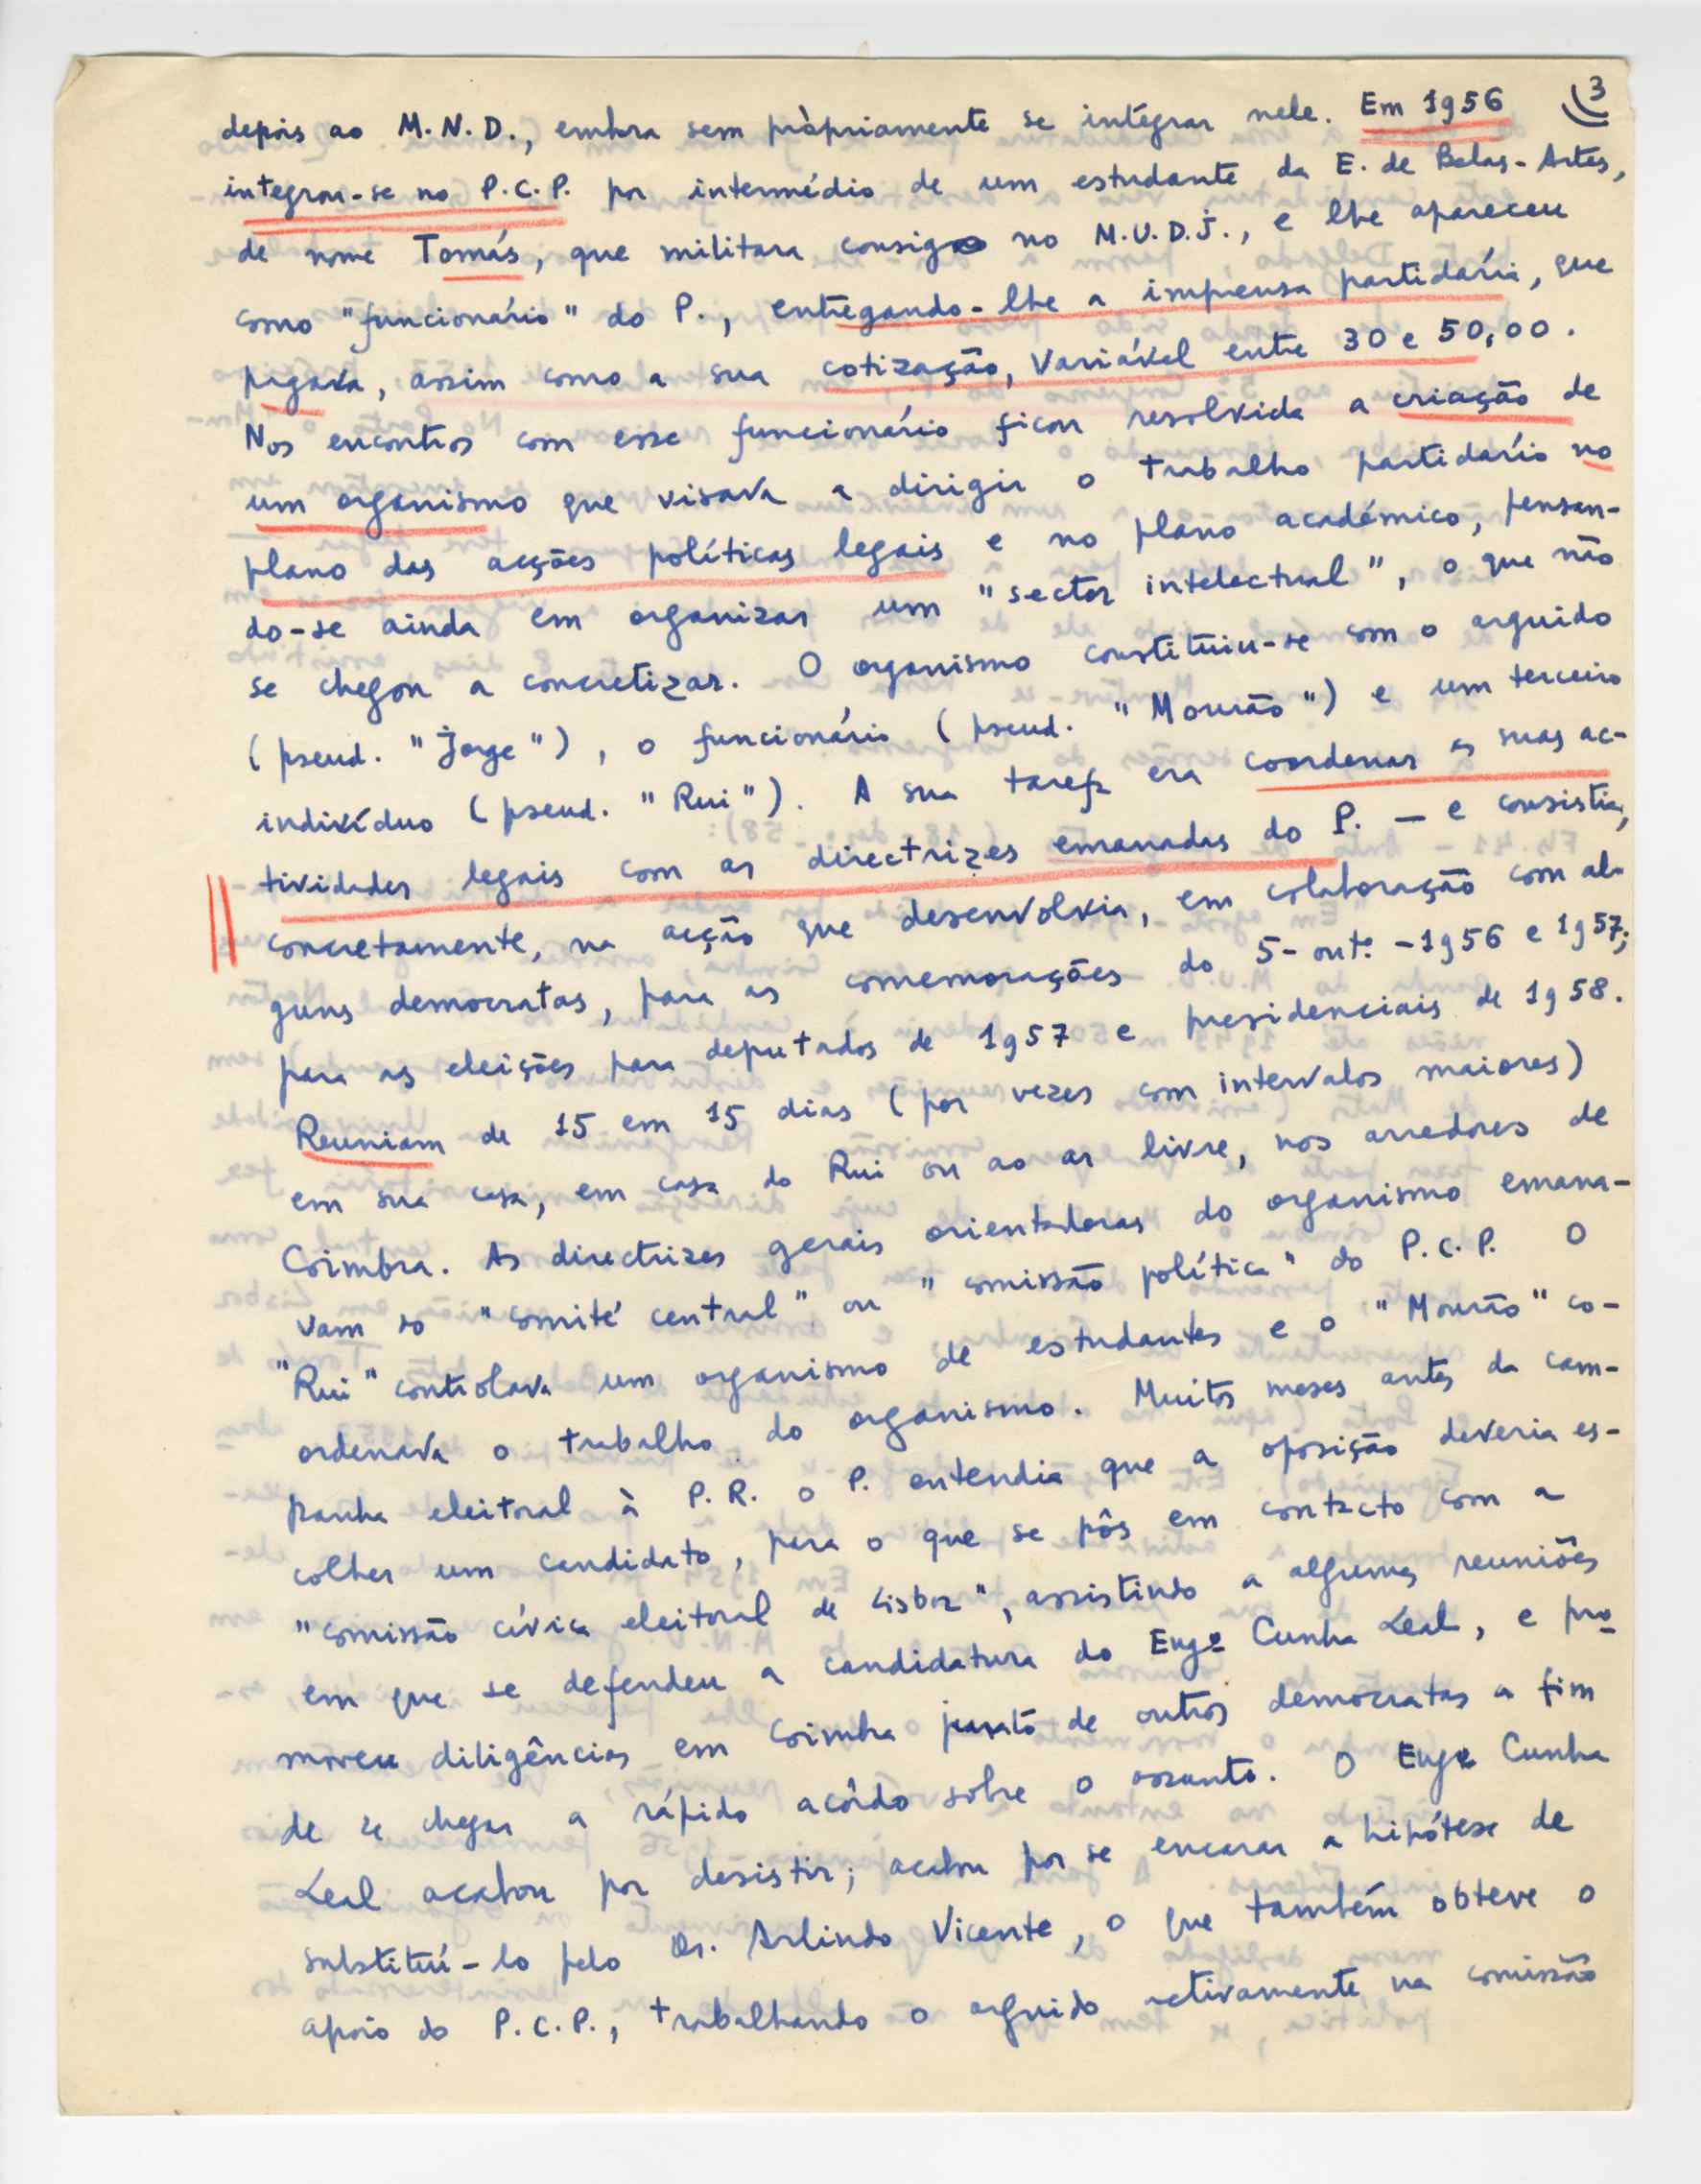 3
depois ao M.N.D., embora sem pròpriamente se intégrar nele. Em 1956
integrou-se no P.C.P. por intermédio de um estudante da E. de Belas-Artes,
de nome Tomás, que militara consigo no M.U.D.J., e lhe apareceu
como "funcionário" do P., entregando-lhe a imprensa partidária, que
pagava, assim como a sua cotização, variável entre 30 e 50,00.
Nos encontros com esse funcionário ficou resolvida a criação de
um organismo que visava a dirigir o trabalho partidário no
plano das acções políticas legais e no plano académico, pensan-
do-se ainda em organizar um "sector intelectual", o que não
se chegou a concretizar. O organismo constituiu-se com o arguido
(pseud. "Jorge"), o funcionário (pseud. "Mourão") e um terceiro
indivíduo (pseud. "Rui"). A sua tarefa era coordenar as suas ac-
tividades legais com as directrizes emanadas do P. — e consistia,
concretamente, na acção que desenvolvia, em colaboração com al-
guns democratas, para as comemorações do 5-outº-1956 e 1957;
para as eleições para deputados de 1957 e presidenciais de 1958.
Reuniam de 15 em 15 dias (por vezes com intervalos maiores)
em sua casa, em casa do Rui ou ao ar livre, nos arredores de
Coimbra. As directrizes gerais orientadoras do organismo emana-
vam do "comité central" ou "comissão política" do P.C.P. O
"Rui" controlava um organismo de estudantes e o "Mourão" co-
ordenava o trabalho do organismo. Muitos meses antes da cam-
panha eleitoral à P.R. o P. entendia que a oposição deveria es-
colher um candidato, para o que se pôs em contacto com a
"comissão cívica eleitoral de Lisboa", assistindo a algumas reuniões
em que se defendeu a candidatura do Engº Cunha Leal, e pro
moveu diligências em Coimbra junto de outros democratas a fim
de se chegar a rápido acôrdo sobre o assunto. O Engº Cunha
Leal acabou por desistir; acabou por se encarar a hipótese de
substituí-lo pelo Dr. Arlindo Vicente, o que também obteve o
apoio do P.C.P., trabalhando o arguido activamente na comissão